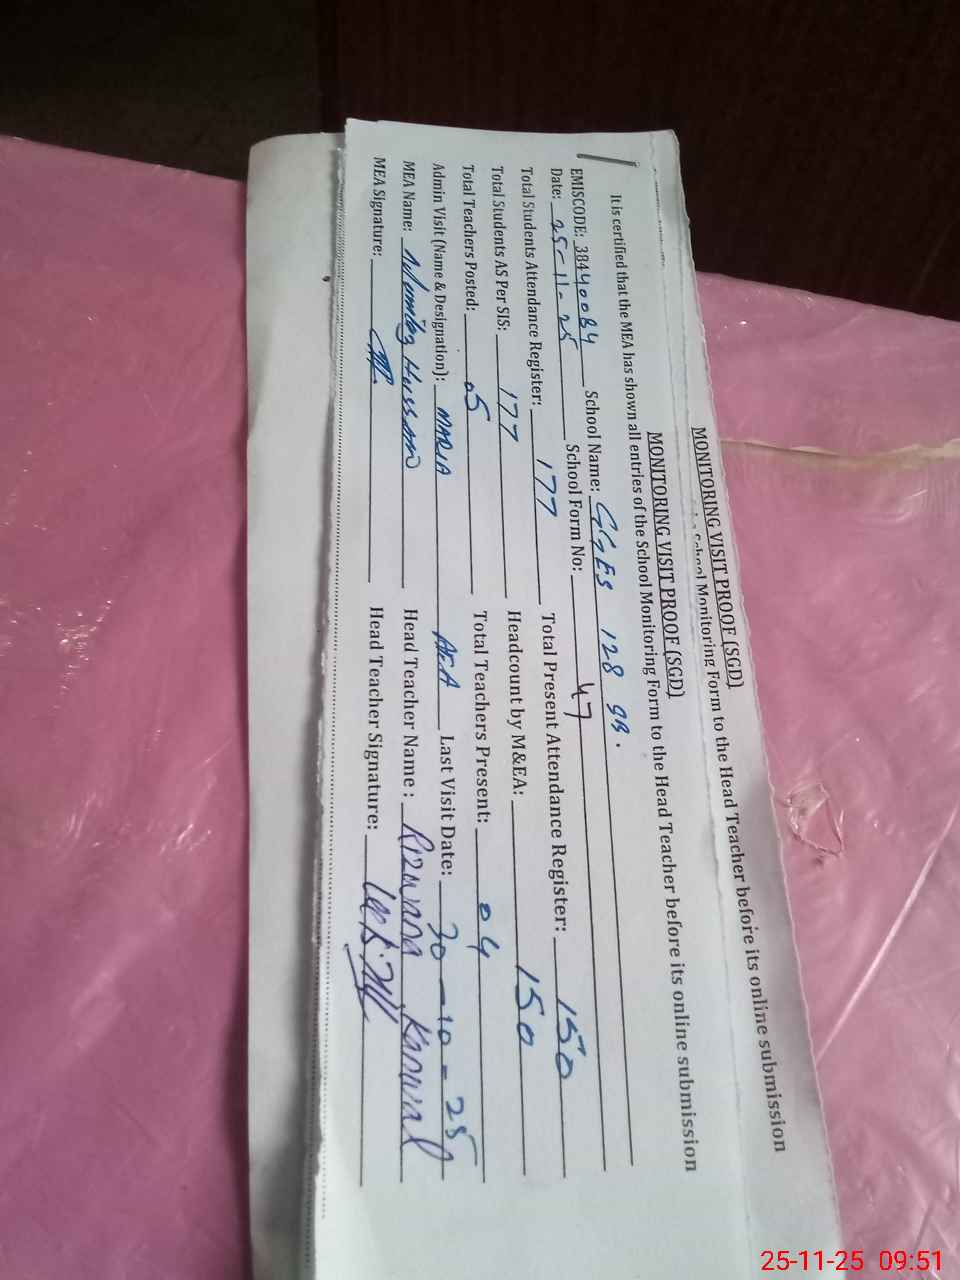 MONITORING VISIT PROOF (SGD)
School Monitoring Form to the Head Teacher before its online submission
MONITORING VISIT PROOF (SGD)
It is certified that the MEA has shown all entries of the School Monitoring Form to the Head Teacher before its online submission
EMISCODE: 38440084 School Name: GGES 128 SB.
Date: 25-11-25 School Form No: 47
Total Students Attendance Register: 177 Total Present Attendance Register: 150
Total Students AS Per SIS: 177 Headcount by M&EA: 150
Total Teachers Posted: 05 Total Teachers Present: 04
Admin Visit (Name & Designation): MARIA AEA Last Visit Date: 30-10-25
MEA Name: Hussain Head Teacher Name: Rizwana Kanwal
MEA Signature: Head Teacher Signature:
25-11-25 09:51